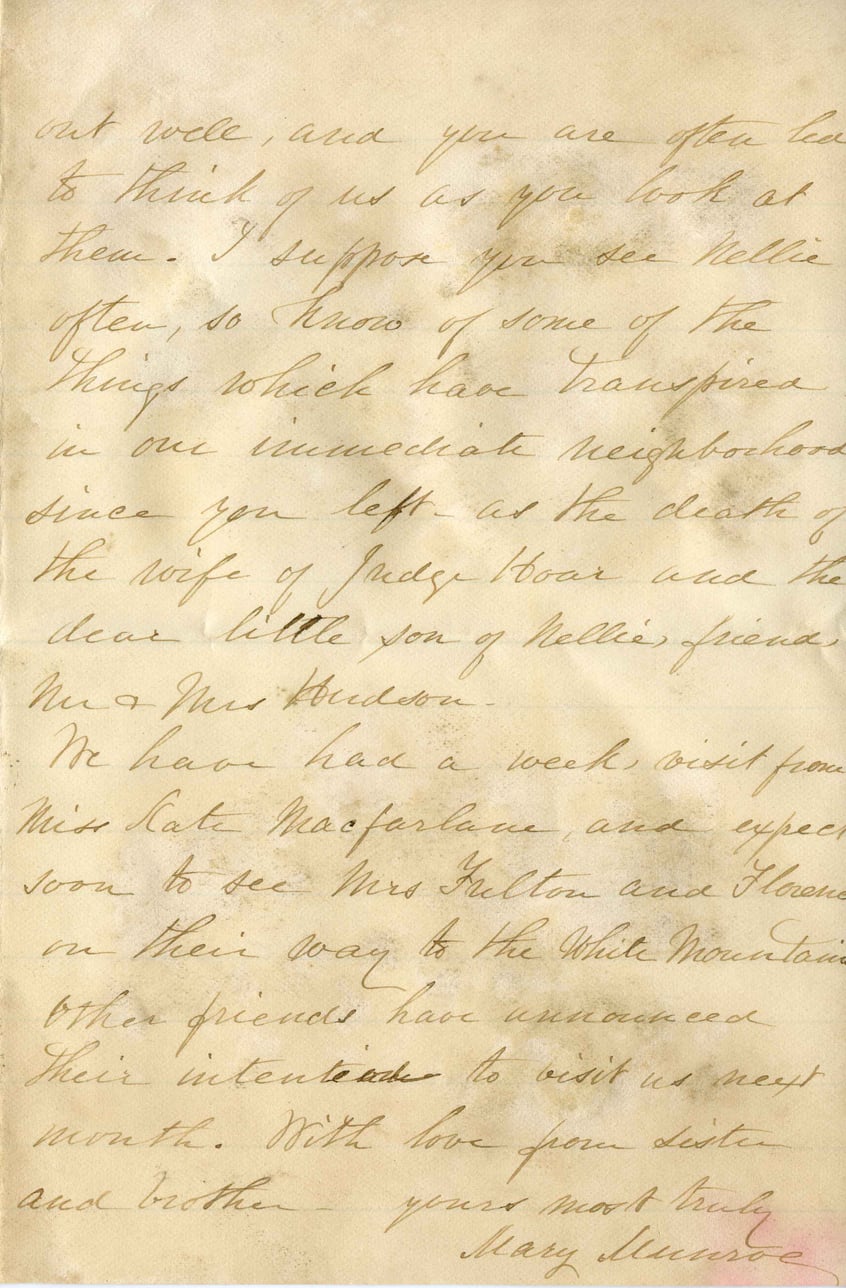 out well, and you are often led
to think of us as you look at
them. I suppose you see Nellie
often, so know of some of the
things which have transpired
in our immediate neighborhood
since you left - as the death of
the wife of Judge Hoar and the
dear little son of Nellies friends
Mr & Mrs Hudson -
We have had a weeks visit from
Miss Kate Macfarlane, and expect
soon to see Mrs Fulton and Florence
on their way to the White Mountains
Other friends have announced
their intention to visit us next
month. With love from sister
and brother - yours most truly
Mary Munroe